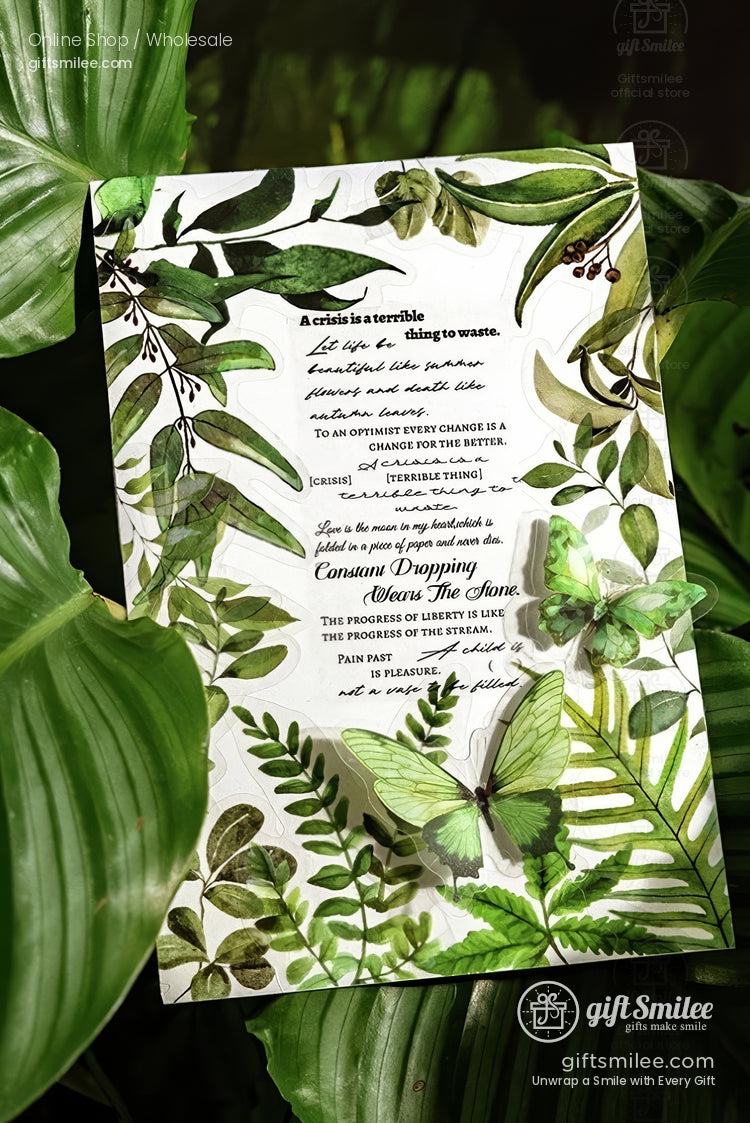 Online Shop / Wholesale
giftsmilee.com
gift Smilee
Giftsmilee
official store
A crisis is a terrible
thing to waste.
Let life be
beautiful like summer
flowers and death like
autumn leaves.
TO AN OPTIMIST EVERY CHANGE IS A
CHANGE FOR THE BETTER.
A crisis is a
[CRISIS] [TERRIBLE THING]
terrible thing to
waste
Love is the moon in my heart,which is
folded in a piece of paper and never dies.
Constant Dropping
Wears The Stone.
THE PROGRESS OF LIBERTY IS LIKE
THE PROGRESS OF THE STREAM.
PAIN PAST A child is
IS PLEASURE.
not a vase to be filled.
gift Smilee
gifts make smile
giftsmilee.com
Unwrap a Smile with Every Gift